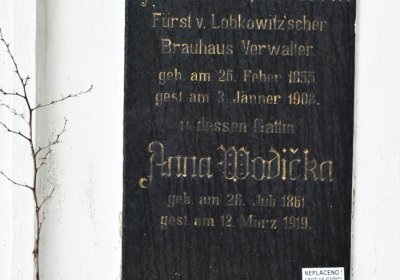 Fürst v. Lobkowitz'scher
Brauhaus Verwalter
geb. am 26. Feber 1855
gest. am 3. Jänner 1903.
u. dessen Gattin
Anna Wodička
geb. am 26. Juli 1861
gest. am 12. März 1919.
NEPLACENO!